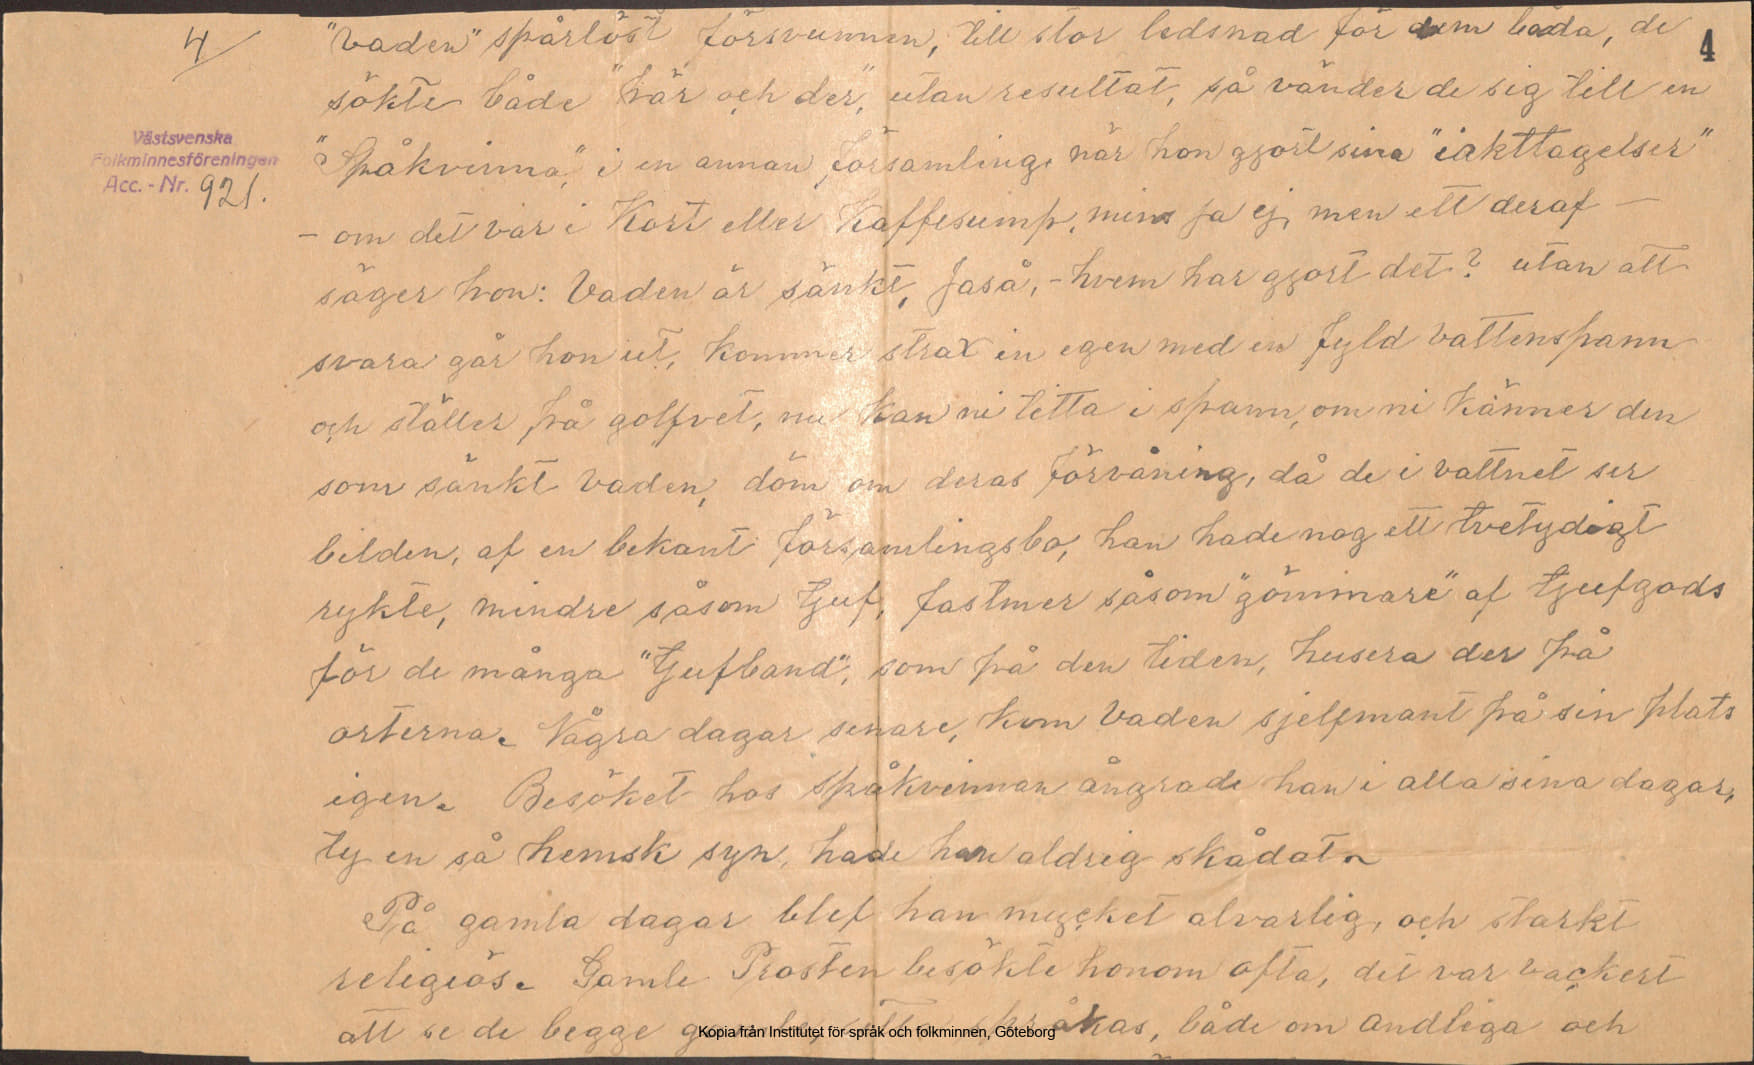 4/
4
"vaden" spårlöst försvunnen, till stor ledsnad för dem båda, de
sökte både "här och der", utan resultat, så vänder de sig till en
Västsvenska
Folkminnesföreningen
Acc. - Nr. 921.
"Spåkvinna", i en annan församling, när hon gjort sina "iakttagelser"
- om det var i Kort eller Kaffesump, mins ja ej, men ett deraf -
säger hon: Vaden är sänkt, Jaså, - hvem har gjort det? utan att
svara går hon ut, kommer strax in egen med en fyld vattenspann
och ställer på golfvet, nu kan ni titta i spann, om ni känner den
som sänkt vaden, döm om deras förvåning, då de i vattnet ser
bilden, af en bekant församlingsbo, han hade nog ett tvetydigt
rykte, mindre såsom tjuf, fastmer såsom "gömmare" af tjufgods
för de många "tjufband", som på den tiden, husera der på
orterna. Några dagar senare, kom vaden sjelfmant på sin plats
igen. Besöket hos spåkvinnan ångrade han i alla sina dagar,
ty en så hemsk syn, hade han aldrig skådat.
På gamla dagar blef han mycket alvarlig, och starkt
religiös. Gamle Prosten besökte honom ofta, det var vackert
att se de begge språkas, både om andliga och
Kopia från Institutet för språk och folkminnen, Göteborg